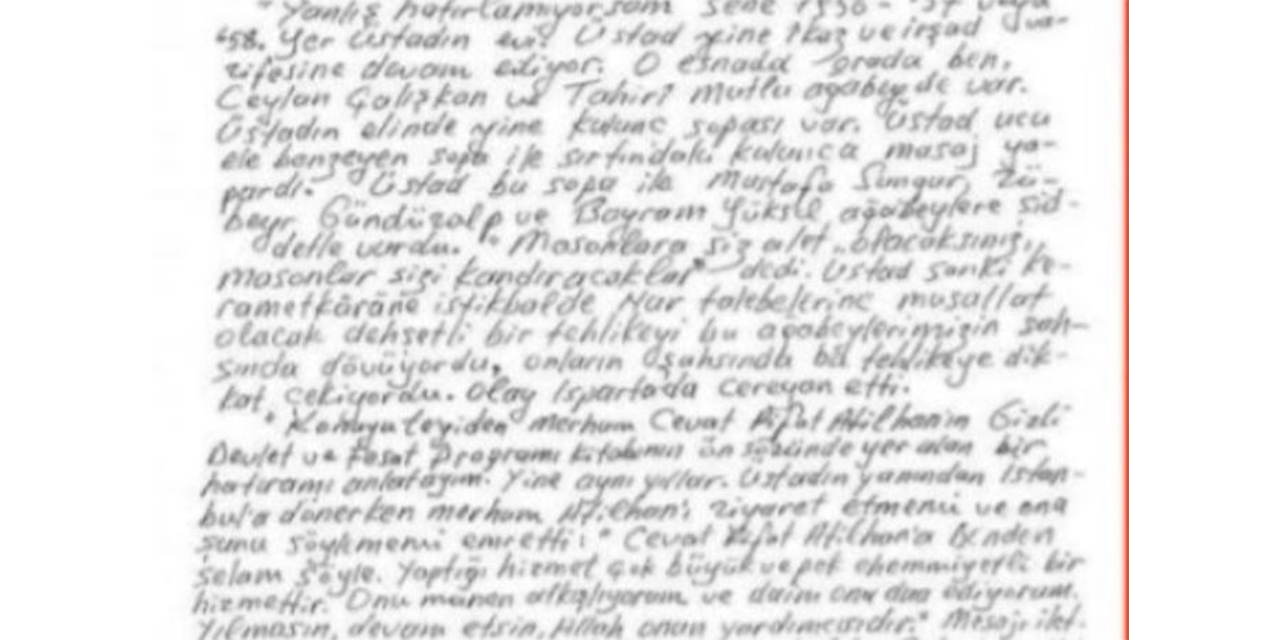 " Yanlış hatırlamıyorsam sene 1956 - '57 veya
'58. Yer Üstadın evi. Üstad yine ikaz ve irşad va-
zifesine devam ediyor. O esnada orada ben,
Ceylan Çalışkan ve Tahiri Mutlu ağabey de var.
Üstadın elinde yine kulunc sopası var. Üstad ucu
ele benzeyen sopa ile sırtındaki kulunca masaj ya-
pardı. Üstad bu sopa ile Mustafa Sungur, Zü-
beyr Gündüzalp ve Bayram Yüksel ağabeylere şid-
detle vurdu. " Masonlara siz alet olacaksınız,
masonlar sizi kandıracaklar" dedi. Üstad sanki ke-
rametkârâne istikbalde Nur talebelerine musallat
olacak dehşetli bir tehlikeyi bu ağabeylerimizin şah-
sında dövüyordu, onların şahsında bu tehlikeye dik-
kat çekiyordu. Olay Ispartada cereyan etti.
" Konuyu teyiden merhum Cevat Rıfat Atilhan'ın Gizli
Devlet ve Fesat Programı kitabının ön sözünde yer alan bir
hatıramı anlatayım. Yine aynı yıllar. Üstadın yanından İstan-
bul'a dönerken merhum Atilhan'ı ziyaret etmemi ve ona
şunu söylememi emretti: " Cevat Rıfat Atilhan'a benden
selam söyle. Yaptığı hizmet çok büyük ve pek ehemmiyetli bir
hizmettir. Onu mânen alkışlıyorum ve daim ona dua ediyorum.
Yılmasın, devam etsin, Allah onun yardımcısıdır." Mesajı ilet-